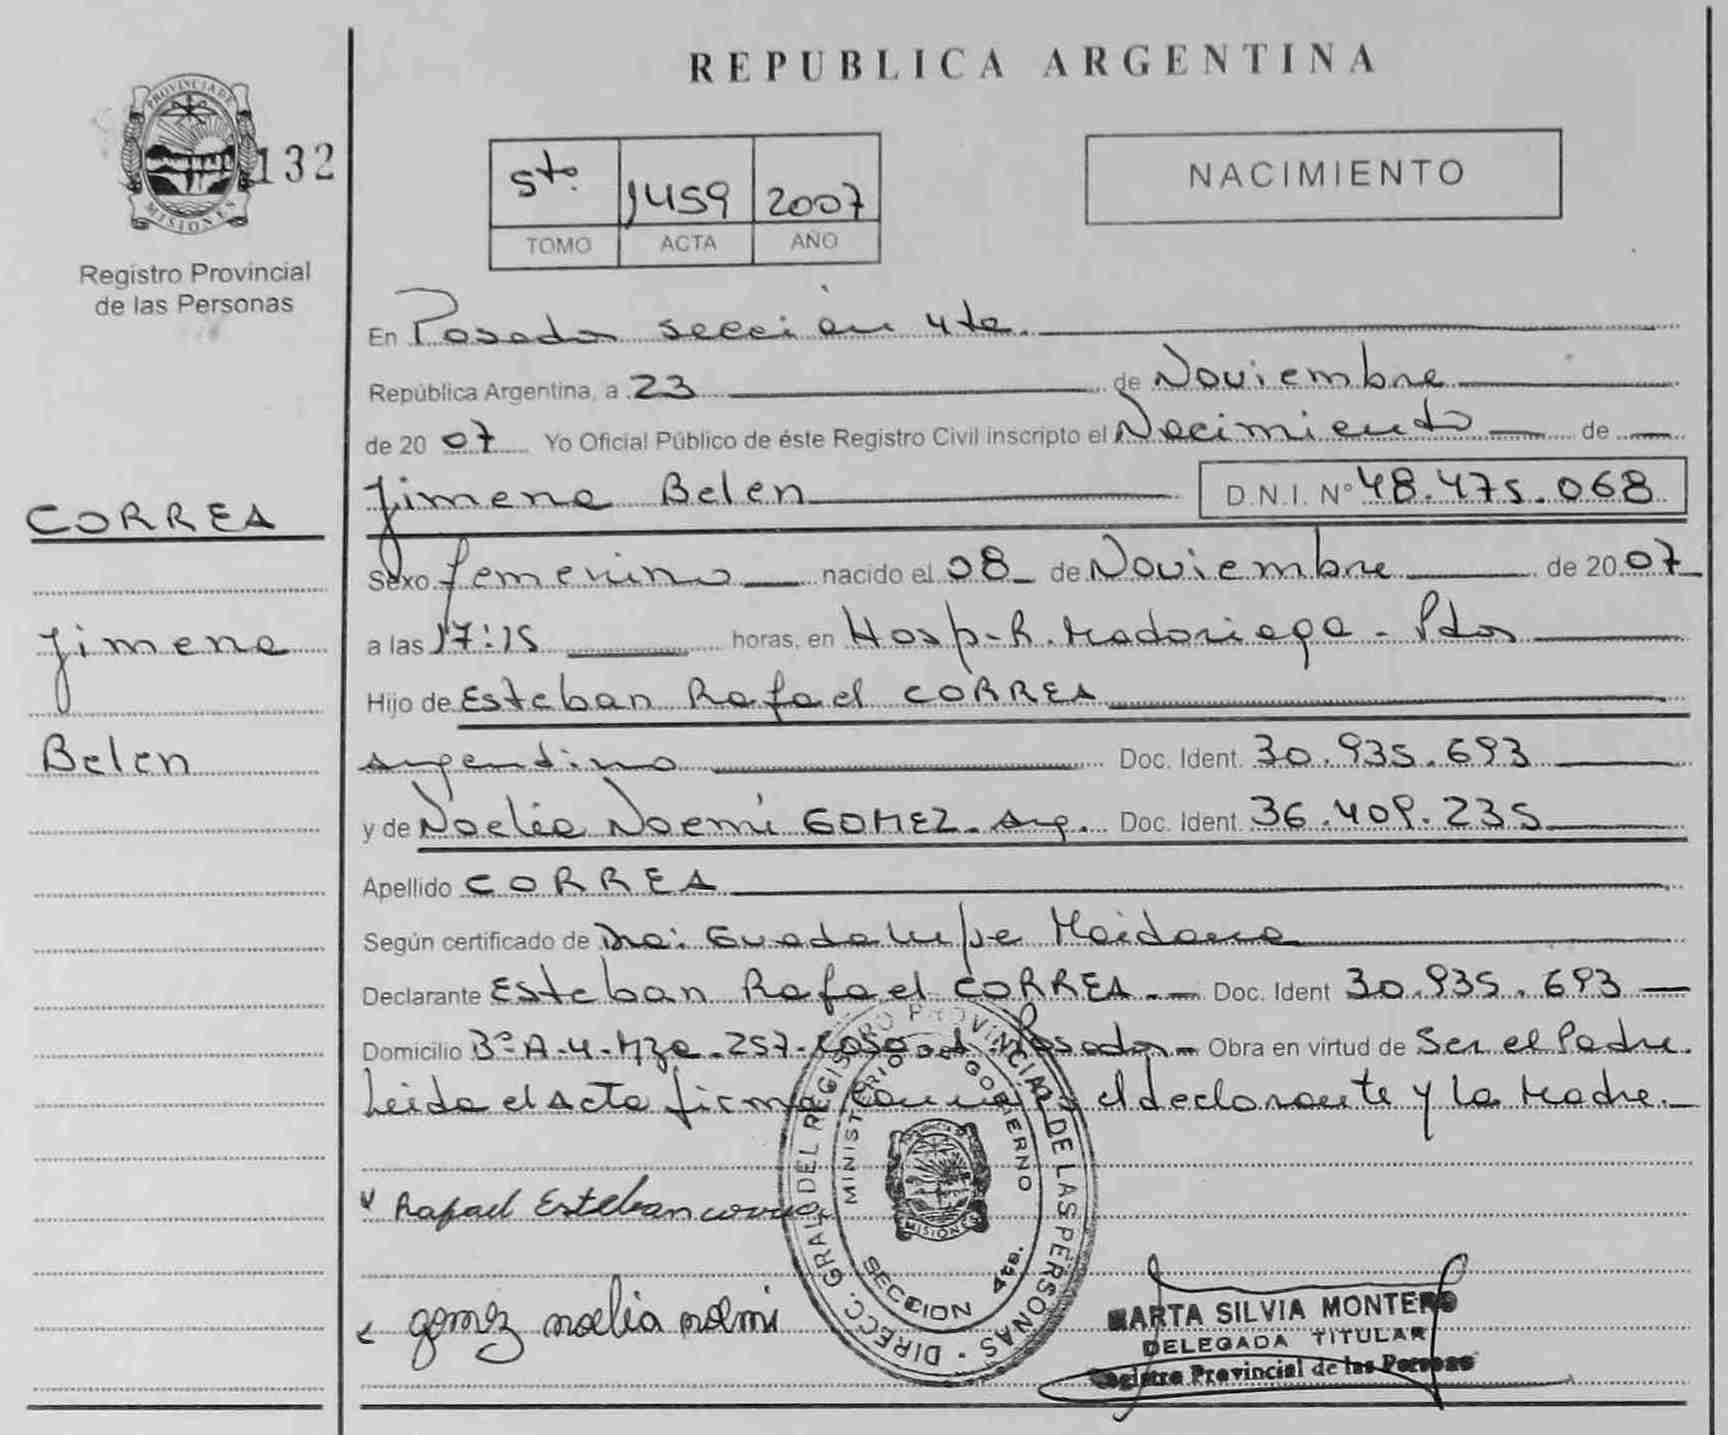 REPUBLICA ARGENTINA
PROVINCIA DE
MISIONES
132
Registro Provincial
de las Personas
5to. 1459 2007
TOMO ACTA AÑO
NACIMIENTO
En Posadas sección 4ta.
República Argentina, a 23 de Noviembre
de 2007 Yo Oficial Público de éste Registro Civil inscripto el Nacimiento de
Jimena Belen D.N.I. Nº 48.475.068
CORREA
Jimena
Belen
Sexo femenino nacido el 08 de Noviembre de 2007
a las 17:15 horas, en Hosp-R. Madariaga - Pdas
Hijo de Esteban Rafael CORREA
argentino Doc. Ident. 30.935.693
y de Noelia Noemi GOMEZ - Arg. Doc. Ident. 36.409.235
Apellido CORREA
Según certificado de Dra: Guadalupe Maidana
Declarante Esteban Rafael CORREA - Doc. Ident 30.935.693
Domicilio Bº-A-4-Mza-257-Casa Posadas - Obra en virtud de Ser el Padre.
Leida el acta firma el declarante y la Madre.
Rafael Esteban correa
gomez noelia noemi
DIRECC. GRAL. DEL REGISTRO PROVINCIAL DE LAS PERSONAS
MINISTERIO DE GOBIERNO
MISIONES
SECCION 4ta.
MARTA SILVIA MONTERO
DELEGADA TITULAR
Registro Provincial de las Personas